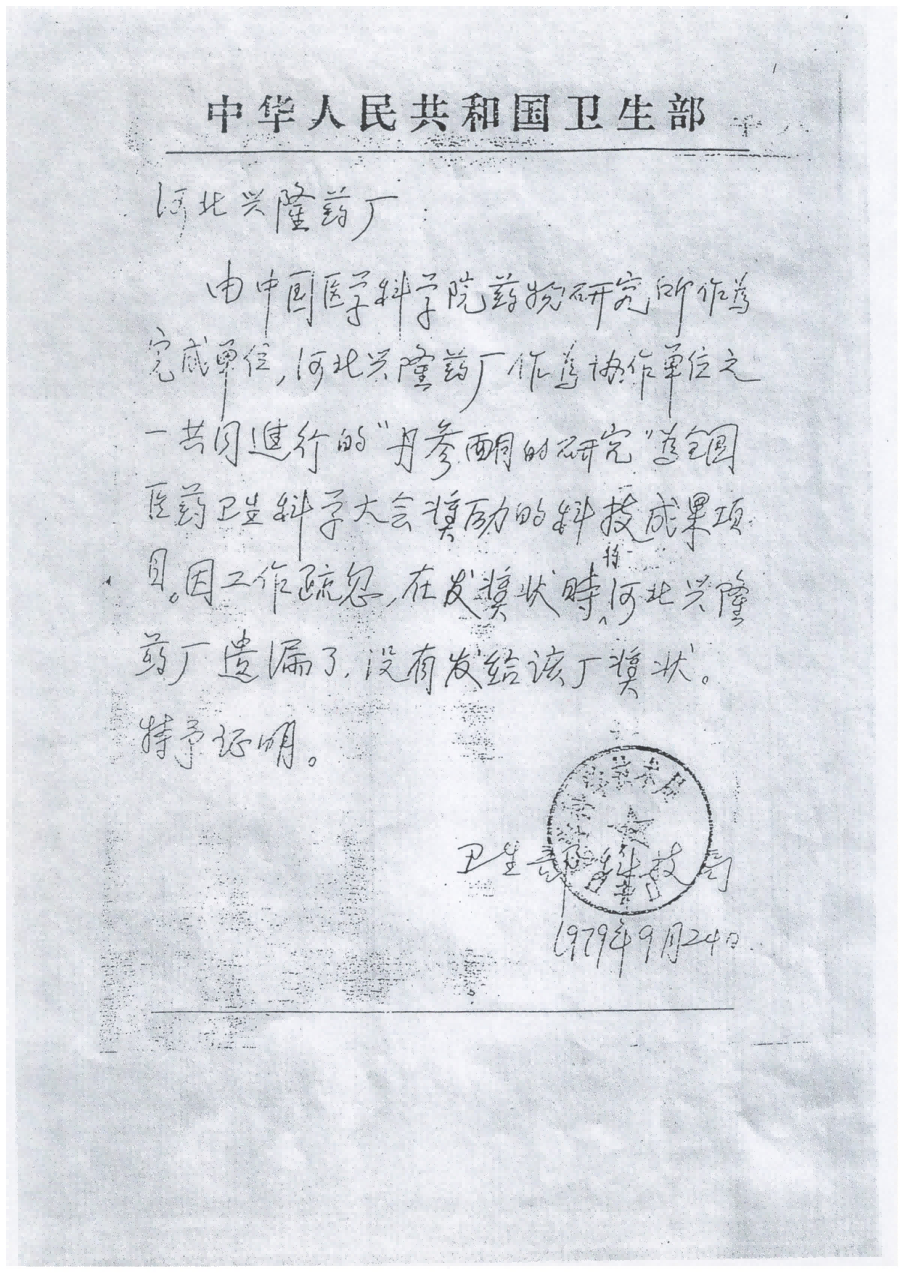 中华人民共和国卫生部
河北兴隆药厂：
由中国医学科学院药物研究所作為
完成单位,河北兴隆药厂作為协作单位之
一共同進行的"丹参酮的研究"為全国
医药卫生科学大会奖励的科技成果项
目。因工作疏忽,在发奖状時,将河北兴隆
药厂遗漏了,没有发给该厂奖状。
特予证明。
技术局
卫生部科技局
1979年9月24日